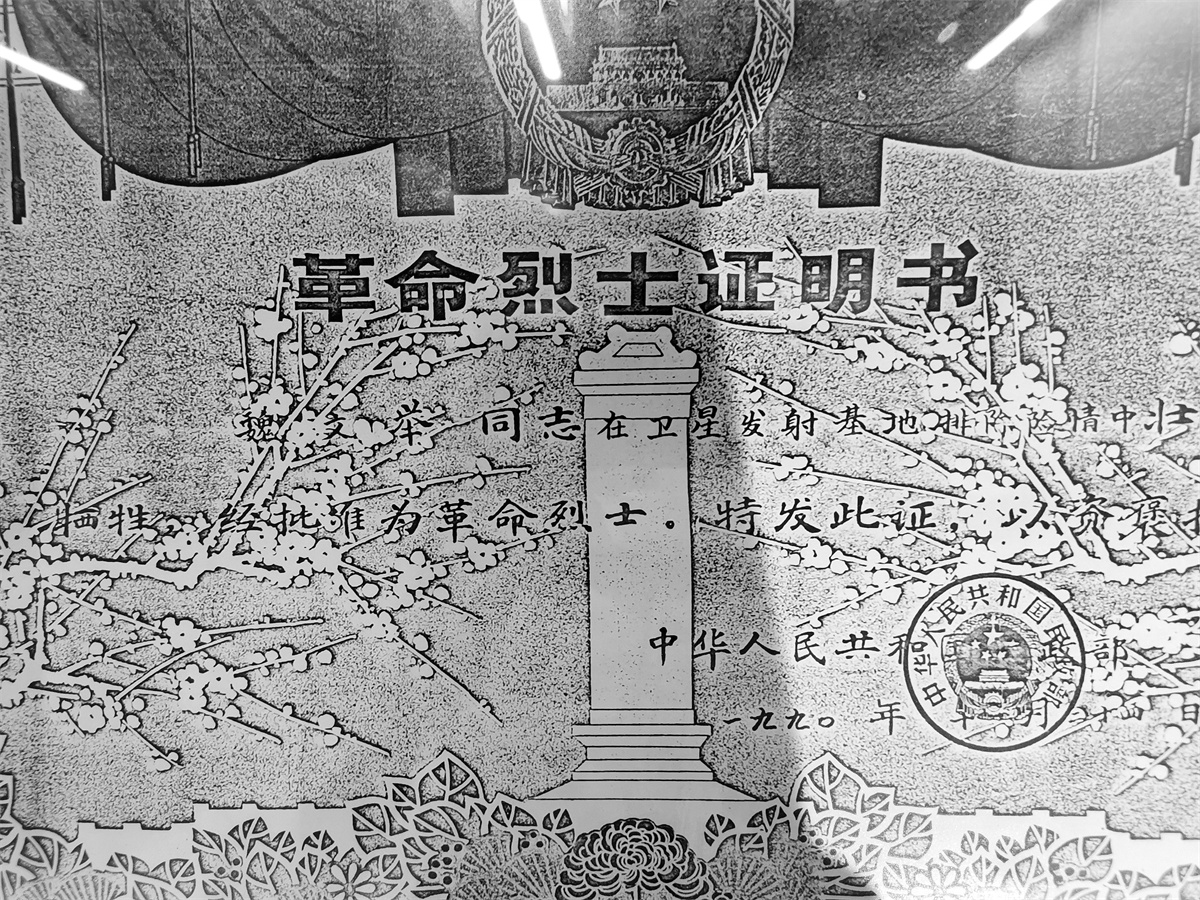 革命烈士证明书
魏文举 同志在卫星发射基地排除险情中壮
牺牲，经批准为革命烈士。特发此证，以资褒
中华人民共和 政部
一九九〇 年 月 四日
中华人民共和国民政部